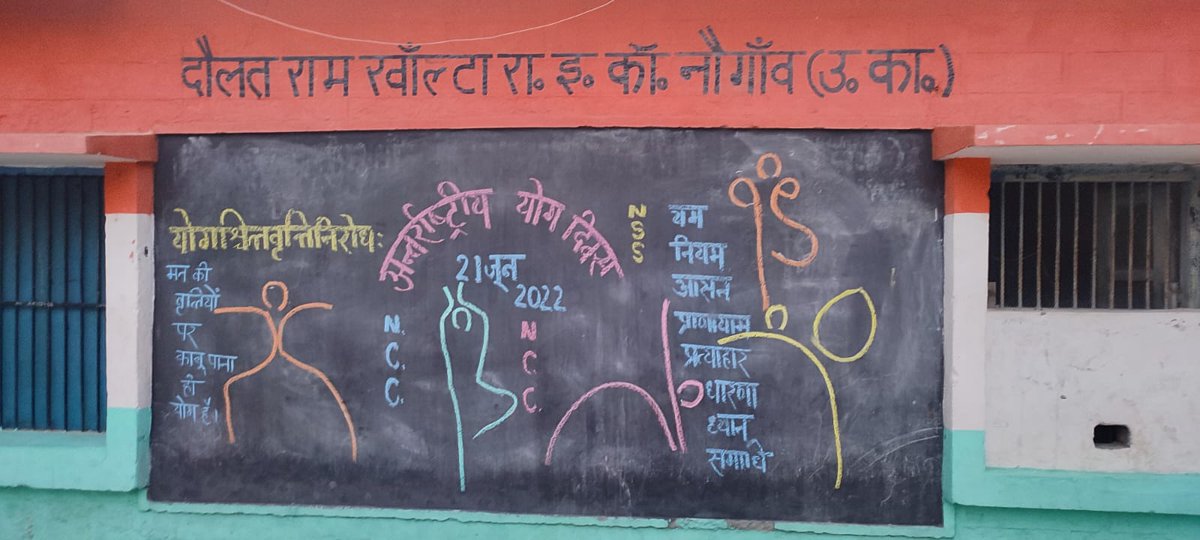 दौलत राम रवाँल्टा रा॰ इ॰ कॉ॰ नौगाँव (उ॰ का॰)
योगश्चित्तवृत्तिनिरोधः
मन की
वृत्तियों
पर
काबू पाना
ही
योग है।
अन्तर्राष्ट्रीय योग दिवस
21 जून
2022
N.
C.
C.
N.
C.
C.
N
S
S
यम
नियम
आसन
प्राणायाम
प्रत्याहार
धारणा
ध्यान
समाधि